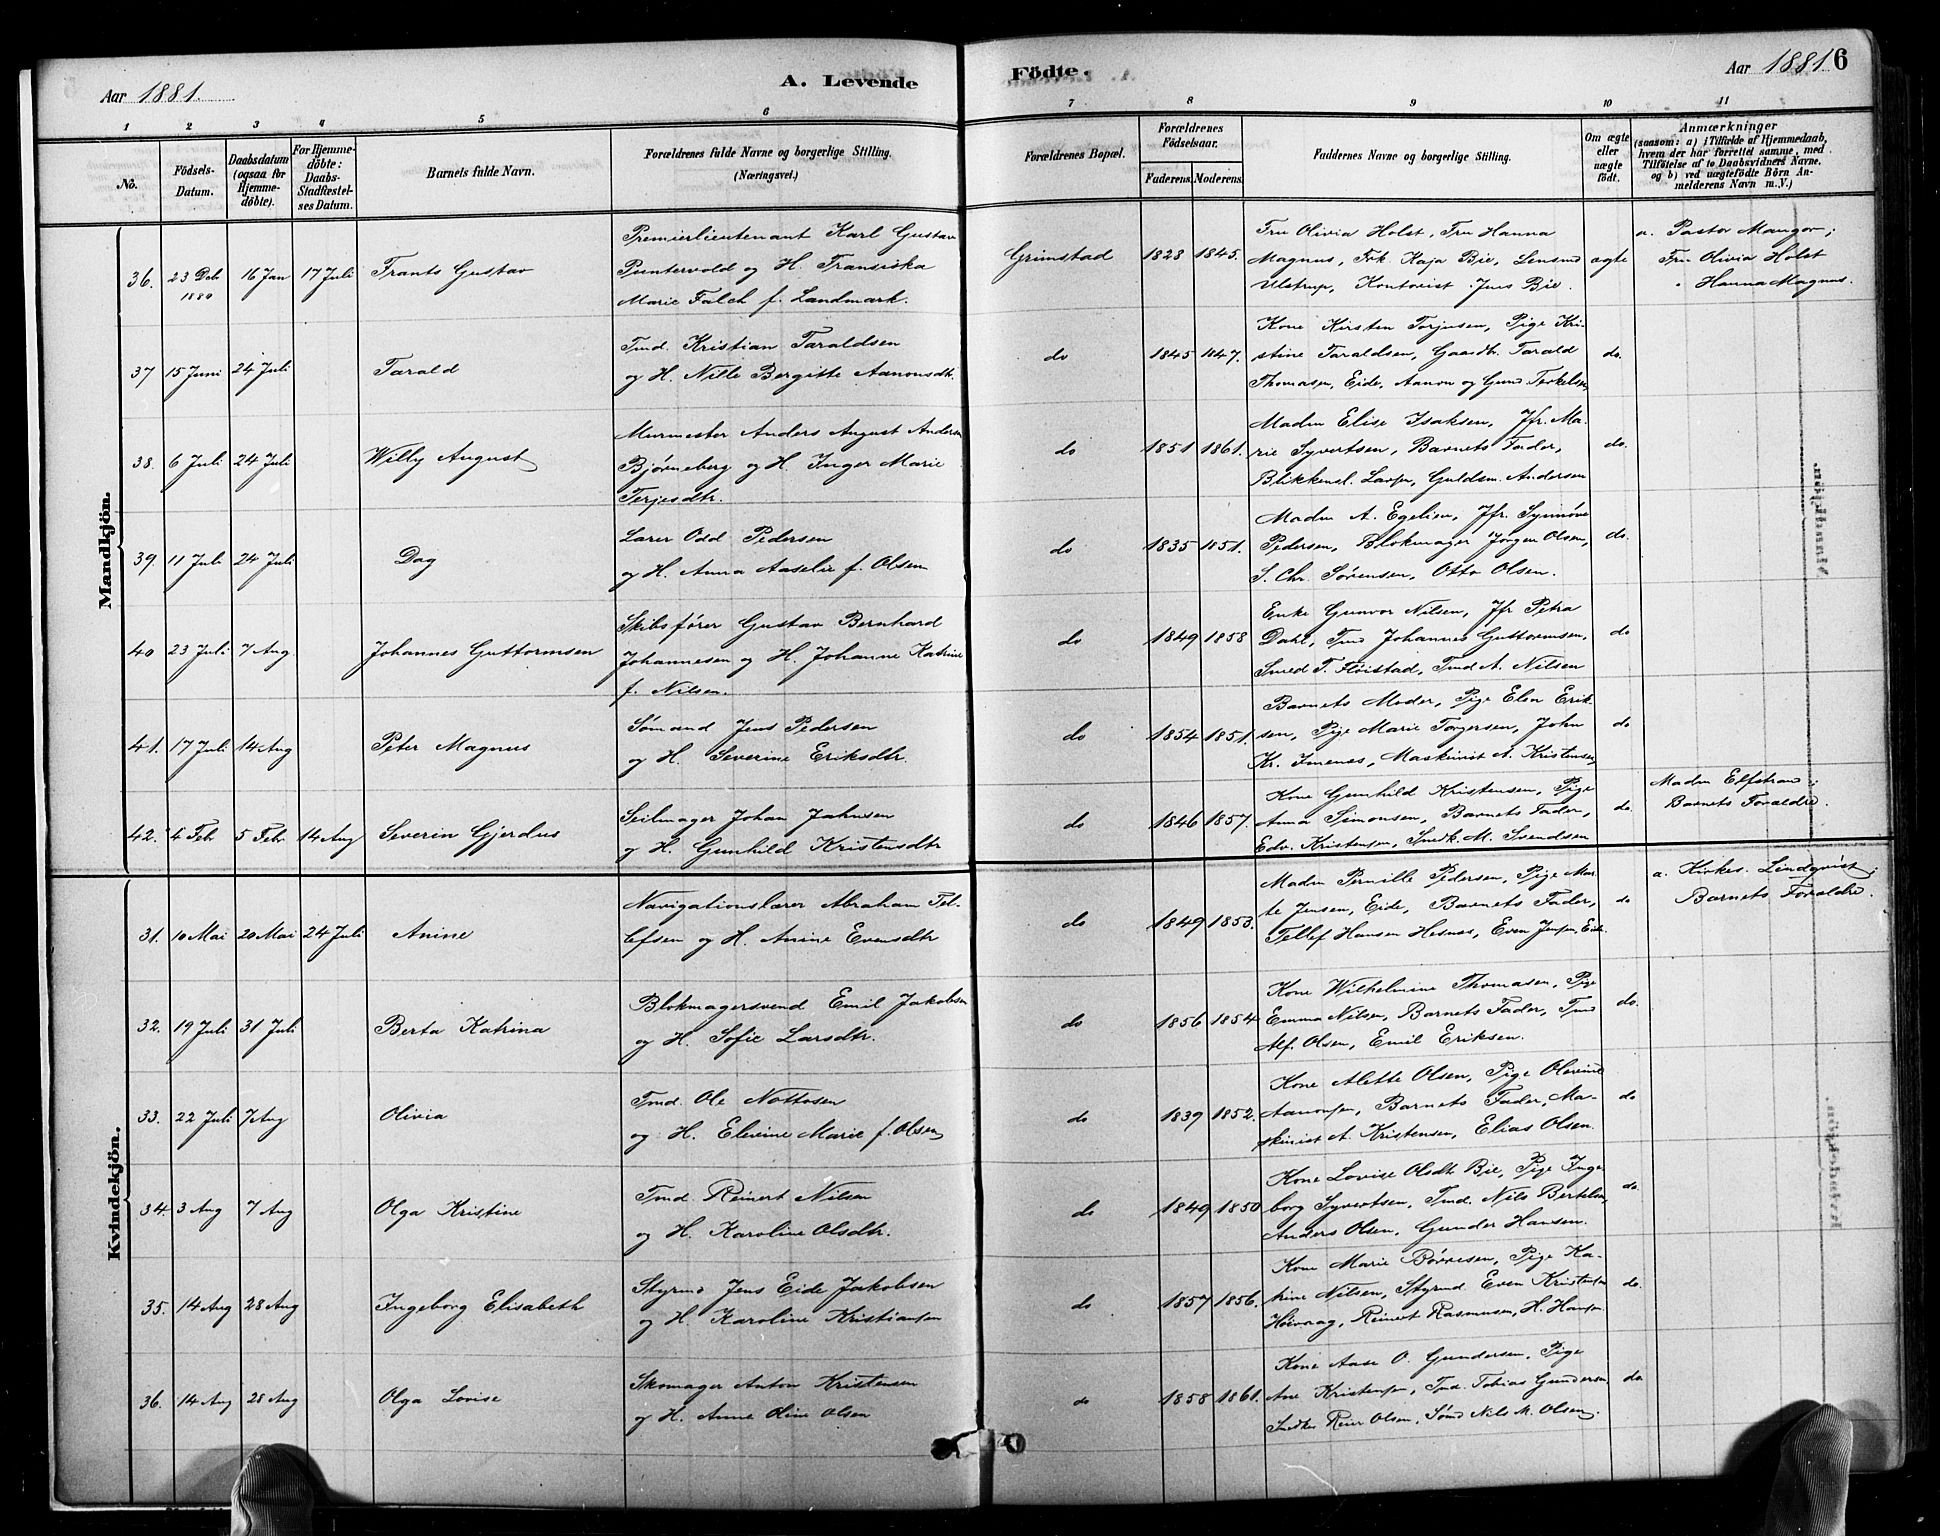 Aar 1881. A. Levende
Födte. Aar 1881 6
1 2 3 4 5 6
7 8 9 10 11
No.
Födsels-
Datum.
Daabsdatum
(ogsaa for
Hjemme-
döbte).
For Hjemme-
döbte:
Daabs-
Stadfæstel-
ses Datum.
Barnets fulde Navn.
Forældrenes fulde Navne og borgerlige Stilling.
(Næringsvei.)
Forældrenes Bopæl.
Forældrenes
Födselsaar.
Faderens. Moderens.
Faddernes Navne og borgerlige Stilling.
Om ægte
eller
uægte
født.
Anmærkninger
(saasom: a) i Tilfælde af Hjemmedaab,
hvem der har forrettet samme, med
Tilföielse af to Daabsvidners Navne.
og b) ved uægtefödte Börn An-
melderens Navn m.V.)
Mandkjön.
36. 23 Deb 1880 16 Jan 17 Juli Frants Gustav
Premierlieutenant Karl Gustav
Puntervold og H. Fransiska
Marie Falch f. Landmark.
Grimstad 1828 1845.
Fru Olivia Holst, Fru Hanna
Magnus, Frk. Kaja Bie, Lensmd
Ulstrup, Kontorist Jens Bie.
ægte
a. Pastor Mangor;
Fru Olivia Holst
" Hanna Magnus.
37 15 Juni 24 Juli Tarald
Tmd. Kristian Taraldsen
og H. Nille Bergitte Aanonsdt.
do 1845 1847.
Kone Kirsten Torjusen, Pige Kri-
stine Taraldsen, Gaardbr. Tarald
Thomasen, Eide, Aanon og Gund Terkelsen
do.
38. 6 Juli 24 Juli Willy August
Murmester Anders August Andersn
Bjørneberg og H. Inger Marie
Terjesdtr.
do 1851 1861.
Madm Elise Isaksen, Jfr. Ma-
rie Syvertsen, Barnets Fader,
Blikkensl. Larsen, Guldsm. Andersen
do.
39. 11 Juli 24 Juli Dag
Lærer Odd Pedersen
og H. Anna Aaselie f. Olsen
do 1835 1851.
Madm A. Egelien, Jfr. Synnøve
Pedersen, Blokmager Jørgen Olsen,
S. Chr. Sørensen, Otto Olsen.
do.
40 23 Juli 7 Aug. Johannes Guttormsen
Skibsfører Gustav Bernhard
Johannesen og H. Johanne Katrine
f. Nilsen.
do 1849 1858
Enke Gunvor Nilsen, Jfr Petra
Dahl, Tmd Johannes Guttormsen,
Smed T. Fløistad, Tmd A. Nilsen
do
41. 17 Juli 14 Aug Peter Magnus
Sømand Jens Pedersen
og H. Severine Eriksdtr.
do 1854 1851.
Barnets Moder, Pige Elen Erik-
sen, Pige Marie Torgersen, John
Kr. Imenes, Maskinist A. Kristensen
do
42. 4 Feb. 5 Feb. 14 Aug Severin Gjerdus
Seilmager Johan Jahnsen
og H. Gunhild Kristensdtr
do 1846 1857.
Kone Gunhild Kristensen, Pige
Anna Simonsen, Barnets Fader,
Edv. Kristensen, Snedk. M. Svendsen
do.
Madm Elfstrand;
Barnets Forældre.
Kvindekjön.
31. 10 Mai 20 Mai 24 Juli Anine
Navigationslærer Abraham Tel-
lefsen og H. Anine Evensdtr
do 1849 1853.
Madm Pernille Pedersen, Pige Mar-
te Jensen, Eide, Barnets Fader,
Tellef Hansen Hesnes, Even Jensen, Eide
do
a. Kirkes. Lindqvist;
Barnets Forældre.
32. 19 Juli 31 Juli Berta Katrina
Blokmagersvend Emil Jakobsen
og H. Sofie Larsdtr.
do 1856 1854
Kone Wilhelmine Thomasen, Pige
Emma Nilsen, Barnets Fader, Tmd
Alf. Olsen, Emil Eriksen.
do.
33. 22 Juli 7 Aug Olivia
Tmd. Ole Nottosen
og H. Elevine Marie f. Olsen
do 1839 1852.
Kone Alette Olsen, Pige Olevine
Aanonsen, Barnets Fader, Ma-
skinist A. Kristensen, Elias Olsen.
do
34. 3 Aug 7 Aug Olga Kristine
Tmd. Reinert Nilsen
og H. Karoline Olsdtr.
do 1849 1850
Kone Lovise Olsdt Bie, Pige Inge-
borg Syvertsen, Tmd. Nils Bertelsen,
Anders Olsen, Gunder Hansen.
do.
35. 14 Aug 28 Aug Ingeborg Elisabeth
Styrmd Jens Eide Jakobsen
og H. Karoline Kristiansen
do 1857 1856.
Kone Marie Børresen, Pige Ka-
trine Nilsen, Styrmd Even Kristensen
Høivaag, Reinert Rasmusen, H. Hansen
do.
36. 14 Aug 28 Aug Olga Lovise
Skomager Anton Kristensen
og H. Anne Oline Olsen
do 1858 1861.
Kone Aase O. Gundersen, Pige
Ane Kristensen, Tmd. Tobias Gundersen
Snedker Reier Olsen, Sømd Nils M. Olsen.
do.